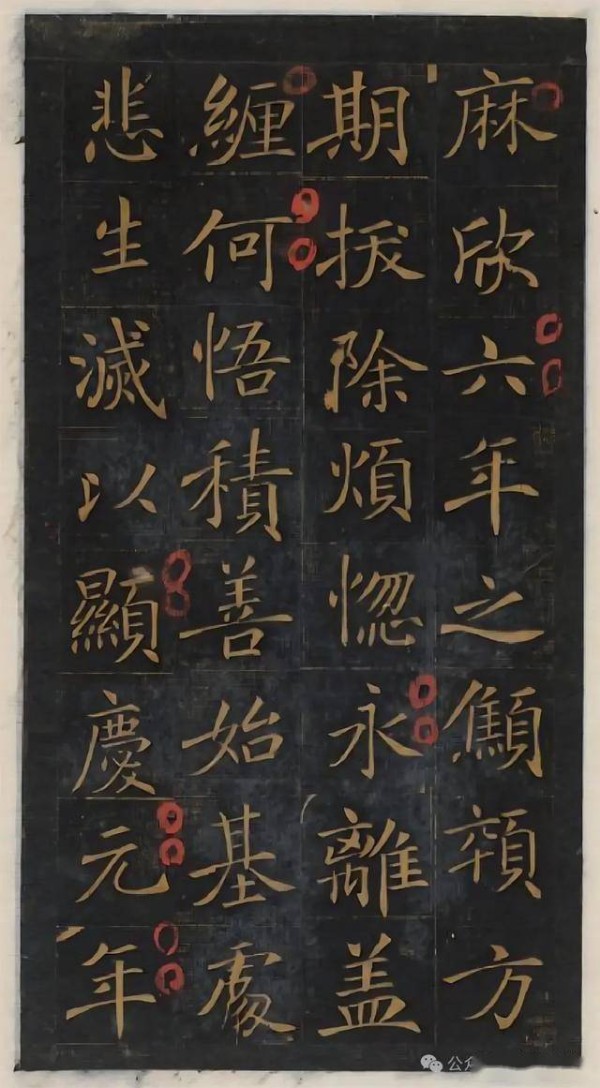 麻欣六年之顦顇方
期拔除煩惱永離盖
纏何悟積善始基處
悲生滅以顯慶元年
公众